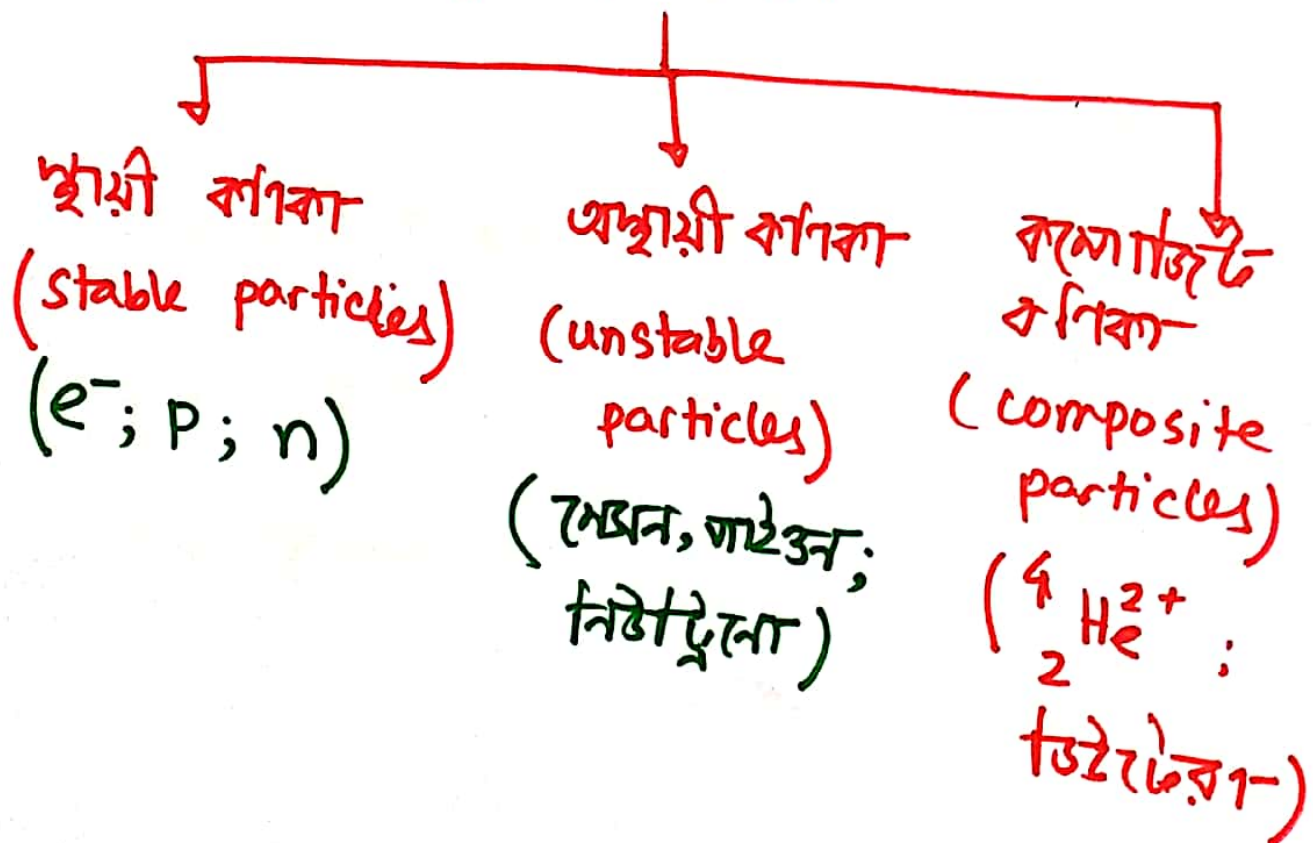 স্থায়ী কণিকা
(stable particles)
(e⁻; P; n)
অস্থায়ী কণিকা
(unstable
particles)
(মেসন, পাইওন;
নিউট্রিনো)
কম্পোজিট
কণিকা
(composite
particles)
(⁴₂He²⁺;
ডিউটেরন)